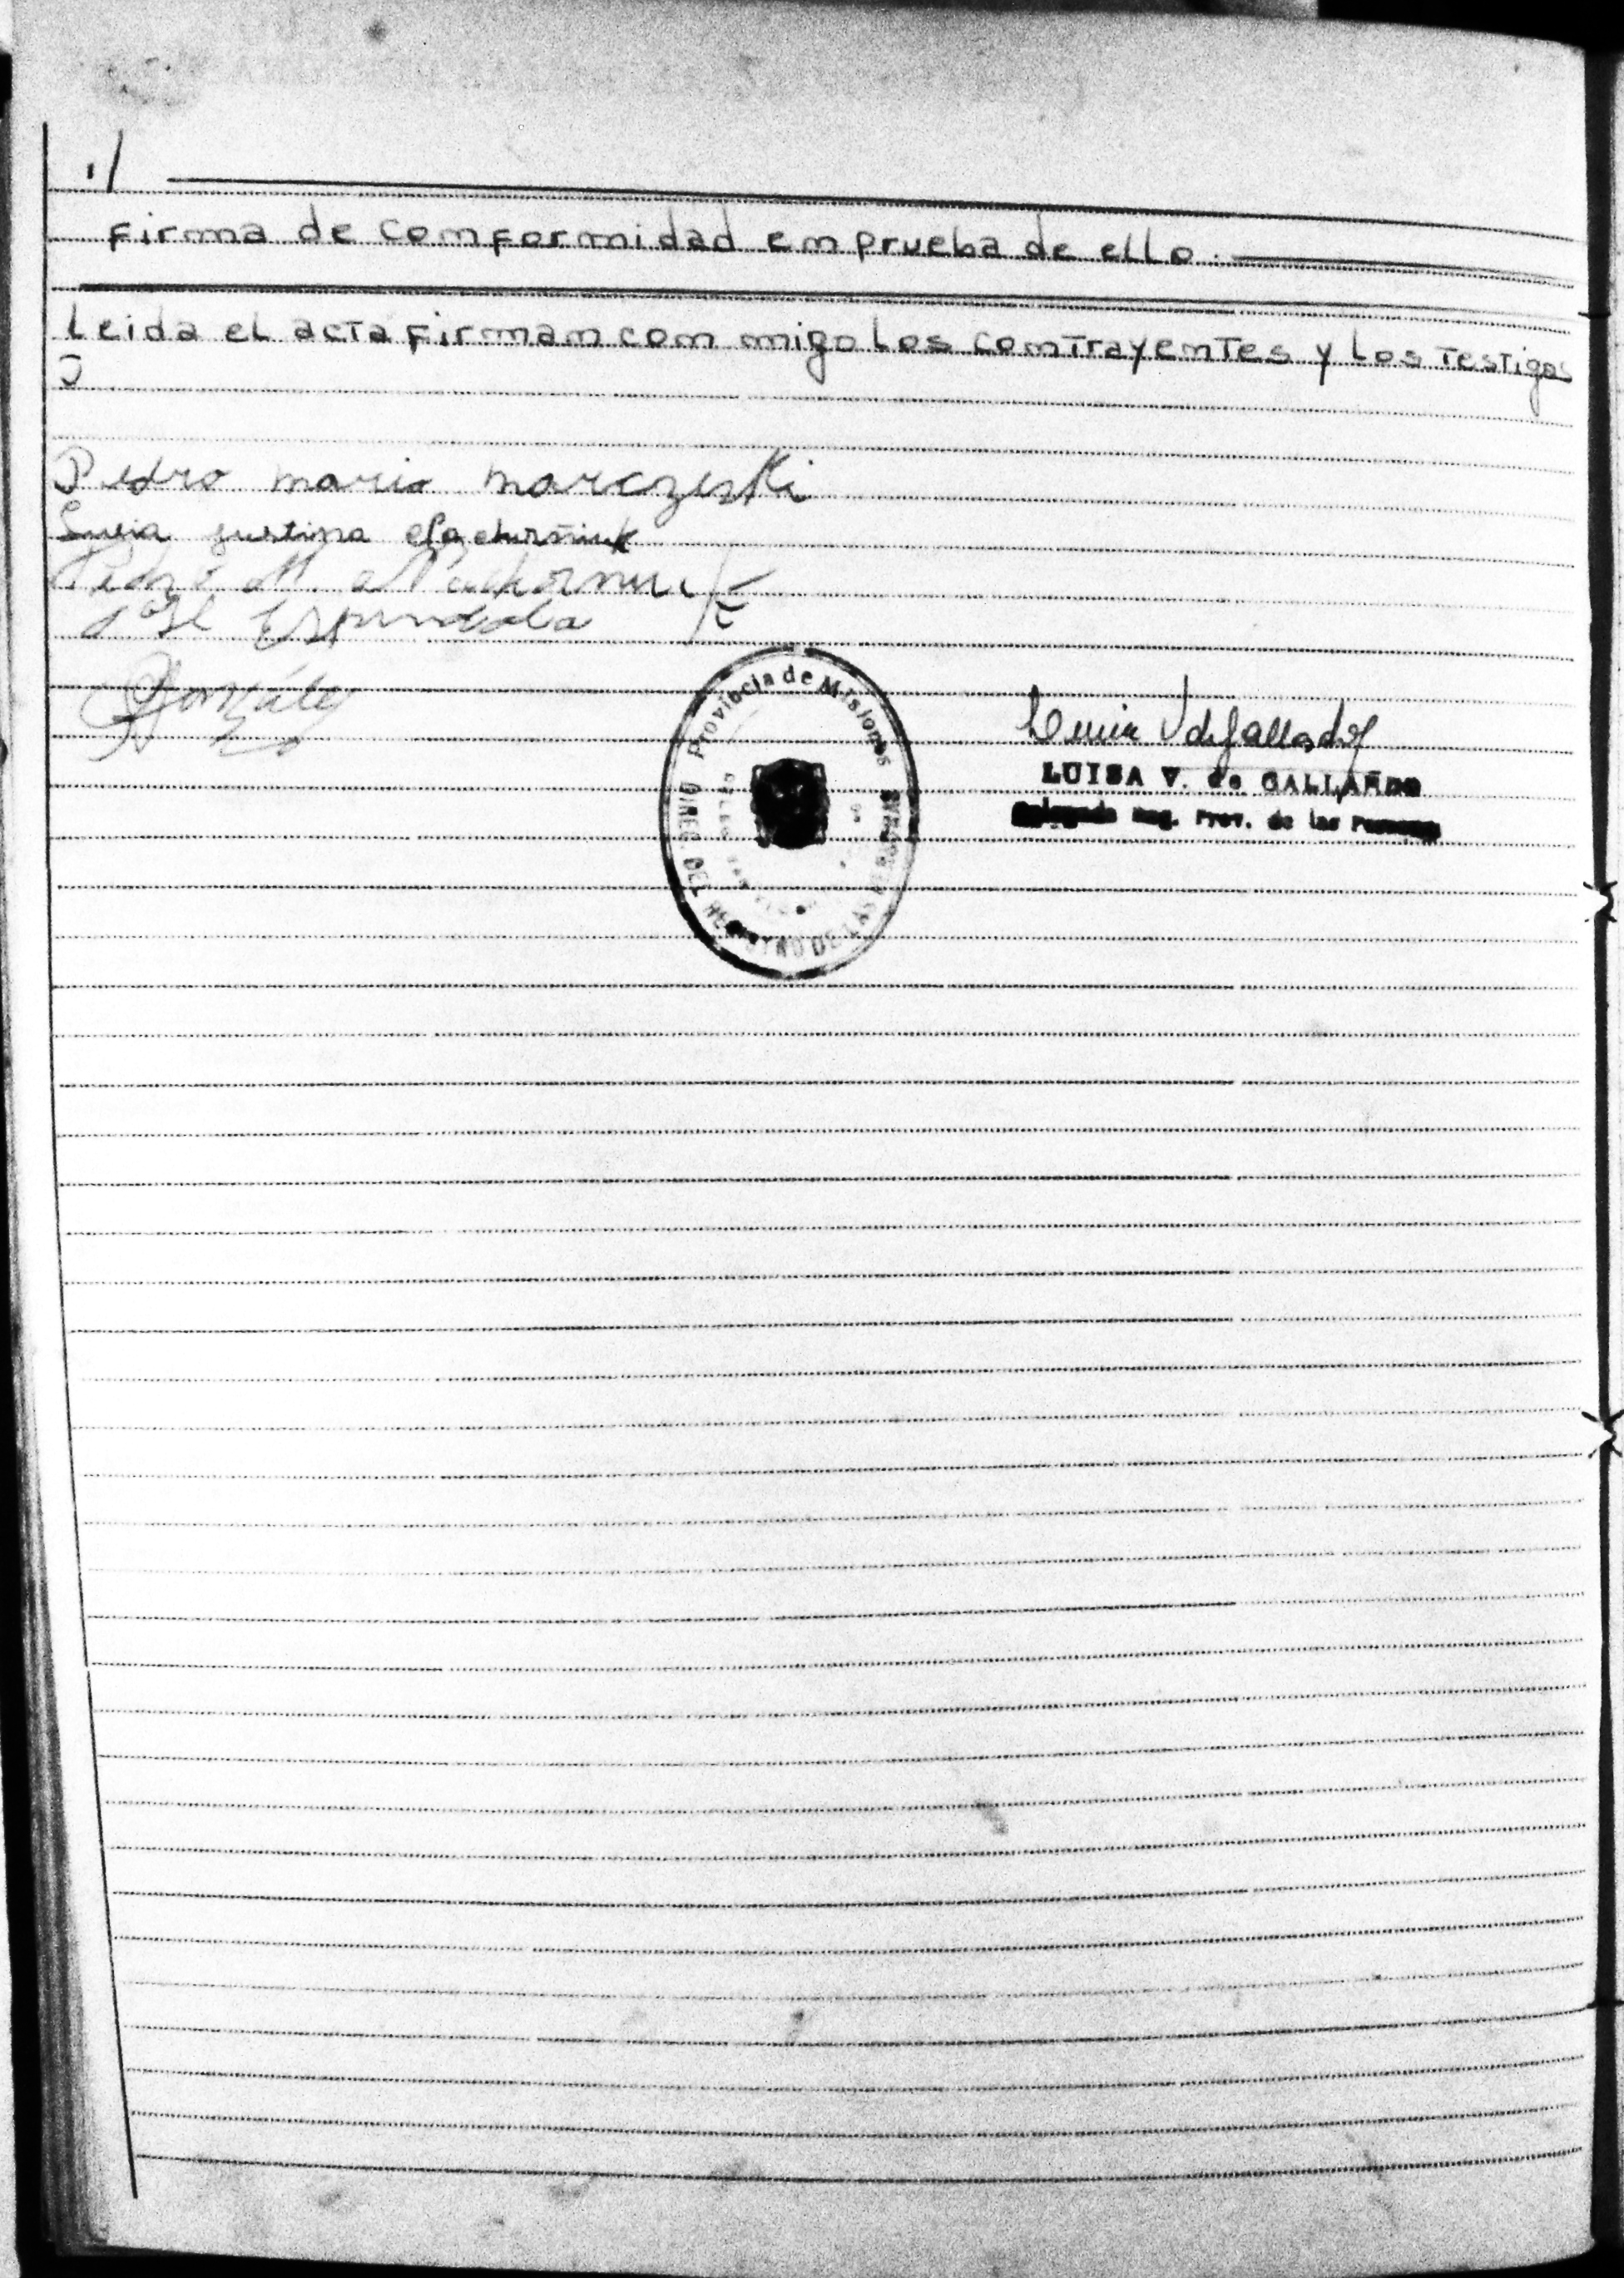 ./
firma de comformidad em prueba de ello.
Leida el acta firmam com migo los comtrayemtes y los testigos
Pedro mario marczeski
justina
Pedro M.
José Espindola
González
Provincia de Misiones
DEL REGISTRO DE LAS PERSONAS
LUISA V. de GALLARDO
Delegada Reg. Prov. de las Personas